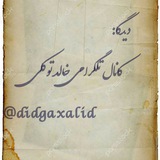 دیدگا:
کانال تلگرامی خالد توکلی
@didgaxalid